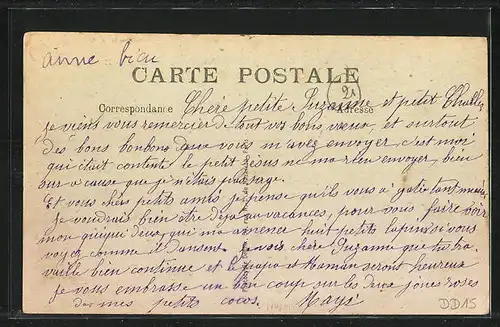 anne bien
CARTE POSTALE
Correspondance
Adresse
21
Chère petite Suzanne et petit Charles
je viens vous remercier de tout vos bons vœux, et surtout
des bons bonbons que vous m'avez envoyer, c'est moi
qui était contente le petit Jésus ne ma rien envoyer, bien
sur a cause que je n'étais pas sage.
Et vous chers petits amis je pense qu'ils vous a gater
Je voudrais bien être déja au vacances, pour vous faire voir
mon qui ma huit petits lapins si vous
voyez comme il dansent je vois chere Suzanne que tu tra
vaille bien continue et le papa et Maman seront heureux
Je vous embrasse un bon coup sur les deux joues roses
de mes petits cocos. Mays
DD15